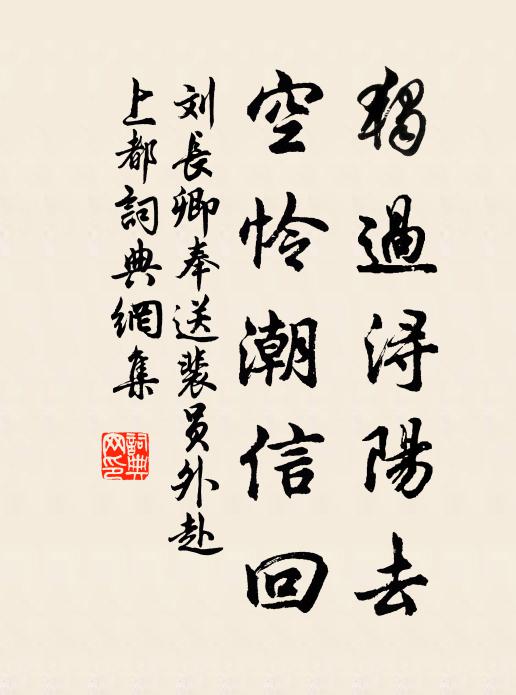 獨過浔陽去
空怜潮信回
刘長卿奉送裴员外赴
上都詞典網集
詞典网印